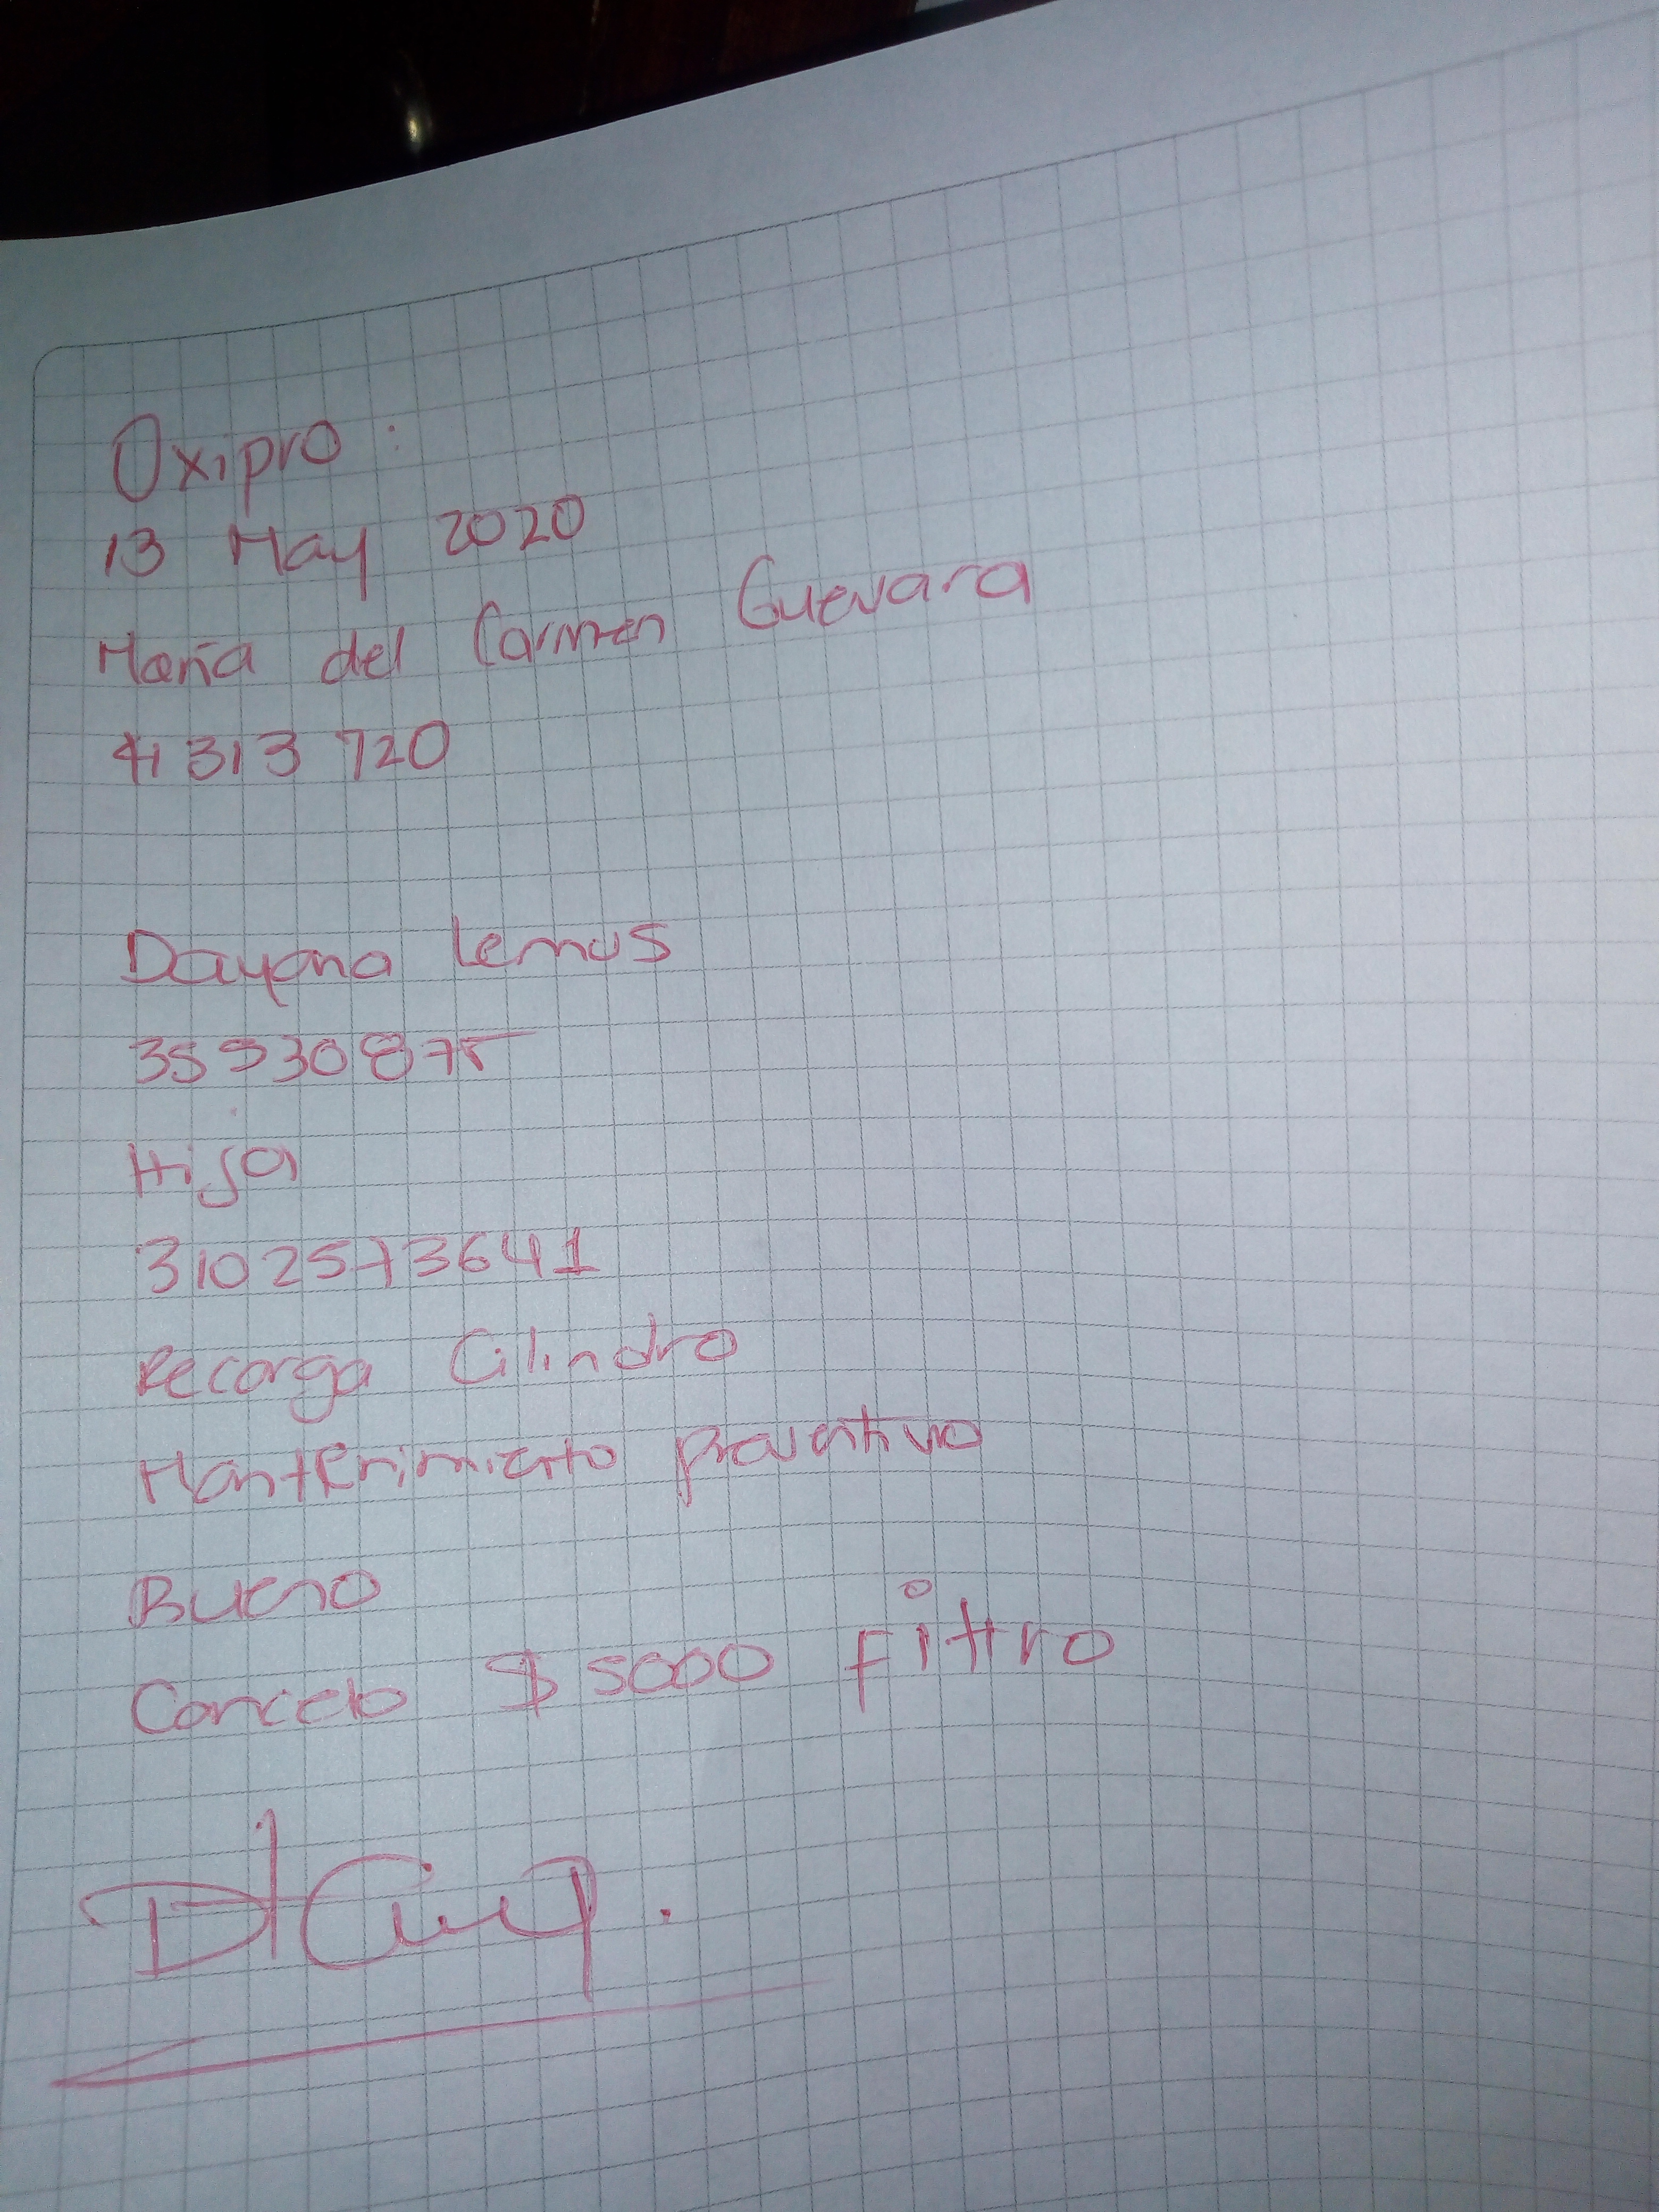 Oxipro:
13 May 2020
María del Carmen Guevara
41 313 720
Dayana Lemus
35930875
Hija
3102573641
Recarga Cilindro
Mantenimiento preventivo
Bueno
Cancelo $ 5000 Filtro